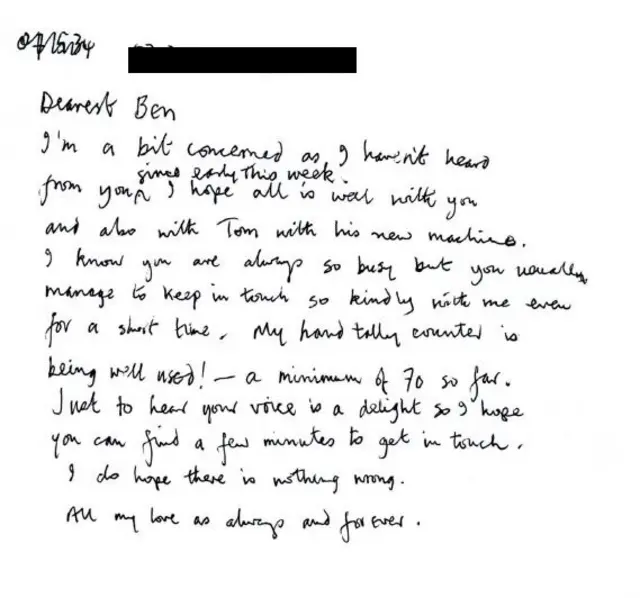 Dearest Ben
I'm a bit concerned as I haven't heard
since early this week.
from you, I hope all is well with you
and also with Tom with his new machine.
I know you are always so busy but you usually
manage to keep in touch so kindly with me even
for a short time. My hand tally counter is
being well used! – a minimum of 70 so far.
Just to hear your voice is a delight so I hope
you can find a few minutes to get in touch.
I do hope there is nothing wrong.
All my love as always and for ever.